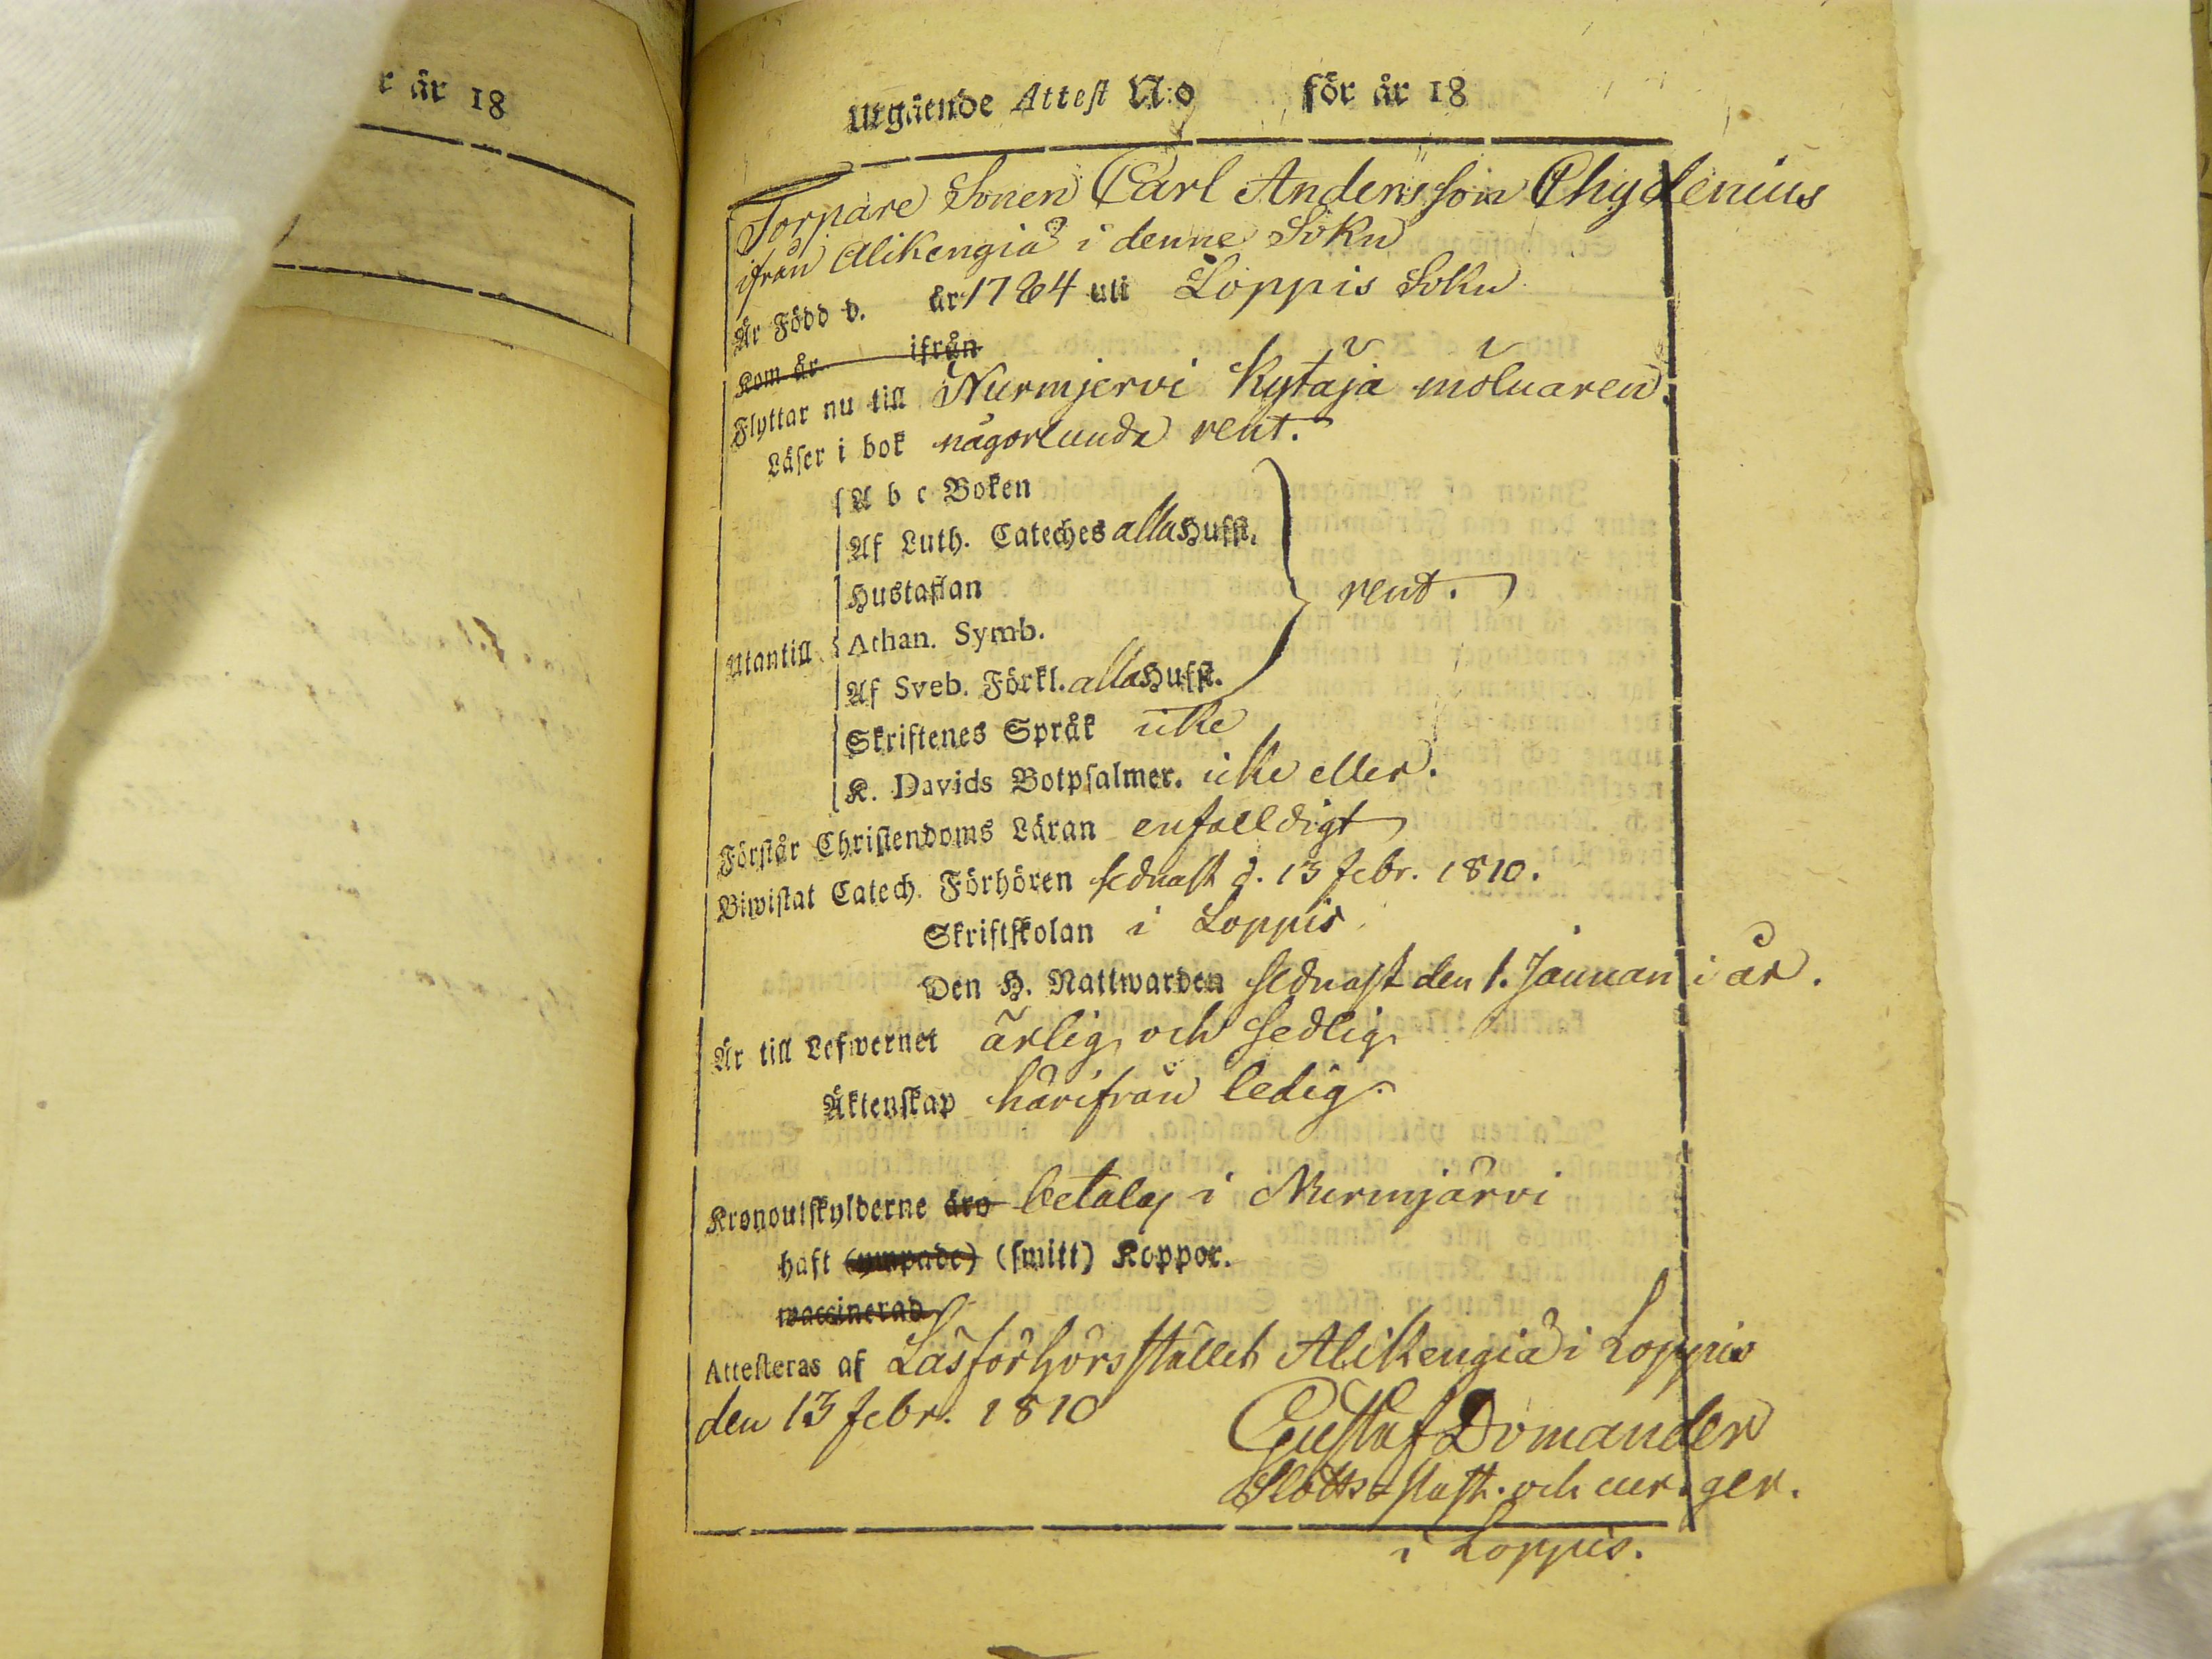 r år 18
Utgående Attest N:o för år 18
Torpare Sonen Carl Andersson Chydenius
ifrån Alikengiä i denne Sokn
Är Född d. år 1784 uti Loppis Sokn
Kom år ifrån
Flyttar nu till Nurmjervi Kytäjä
Läser i bok någorlunda rent.
A b c Boken
Af Luth. Cateches alla Hufst.
Hustaflan
rent.
Utantill Athan. Symb.
Af Sveb. Förkl. alla Hufst.
Skriftenes Språk icke
K. Davids Botpsalmer. icke eller.
Förstår Christendoms Läran enfalldigt
Biwistat Catech. Förhören sednast d. 13 Febr. 1810.
Skriftskolan i Loppis
Den H. Nattwarden sednast den 1. Januari i år.
Är till Lefwernet ärlig och sedlig
Äktenskap härifrån ledig.
Kronoutskylderne äro betalas i Nurmjärvi
haft (ympade) (smitt) Koppor.
waccinerad
Attesteras af Läsförhörs stället Alikengiä i Loppis
den 13 Febr. 1810
Gustaf Domander
Slotts-past. och cur. ger.
i Loppis.